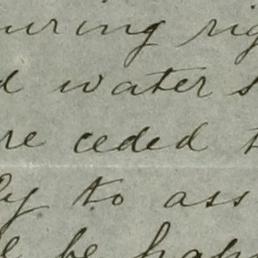 uring rig
d water s
re ceded t
ly to ass
l be hap